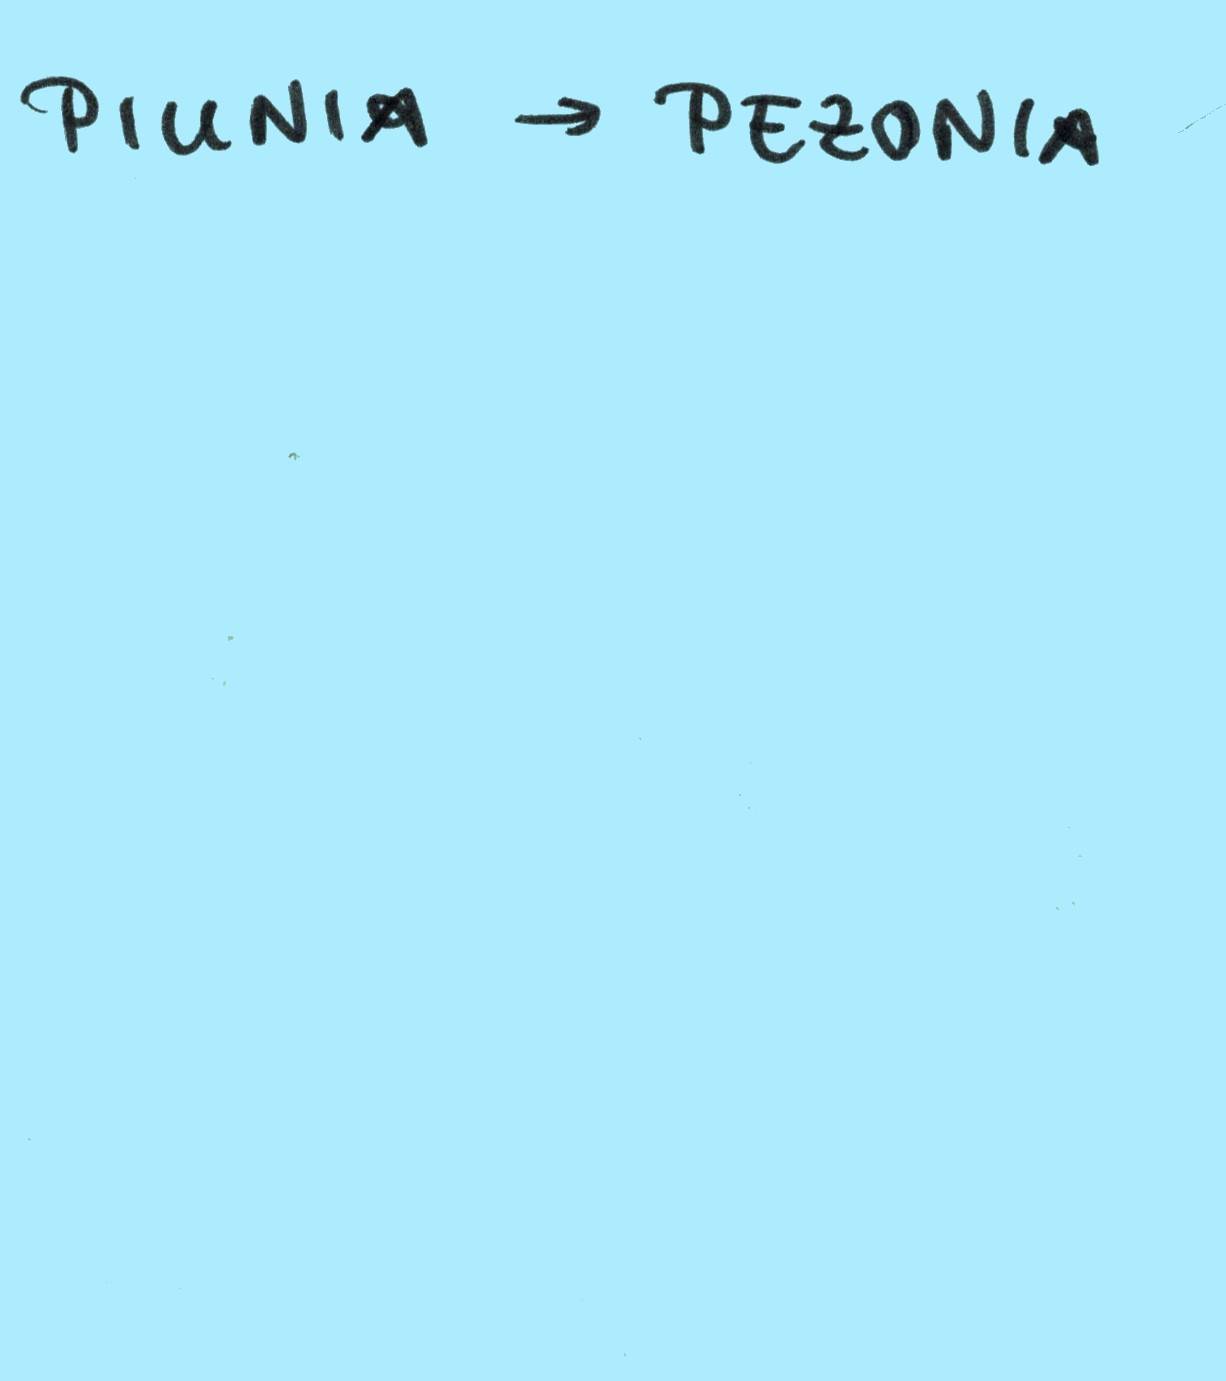 PIUNIA → PEZONIA